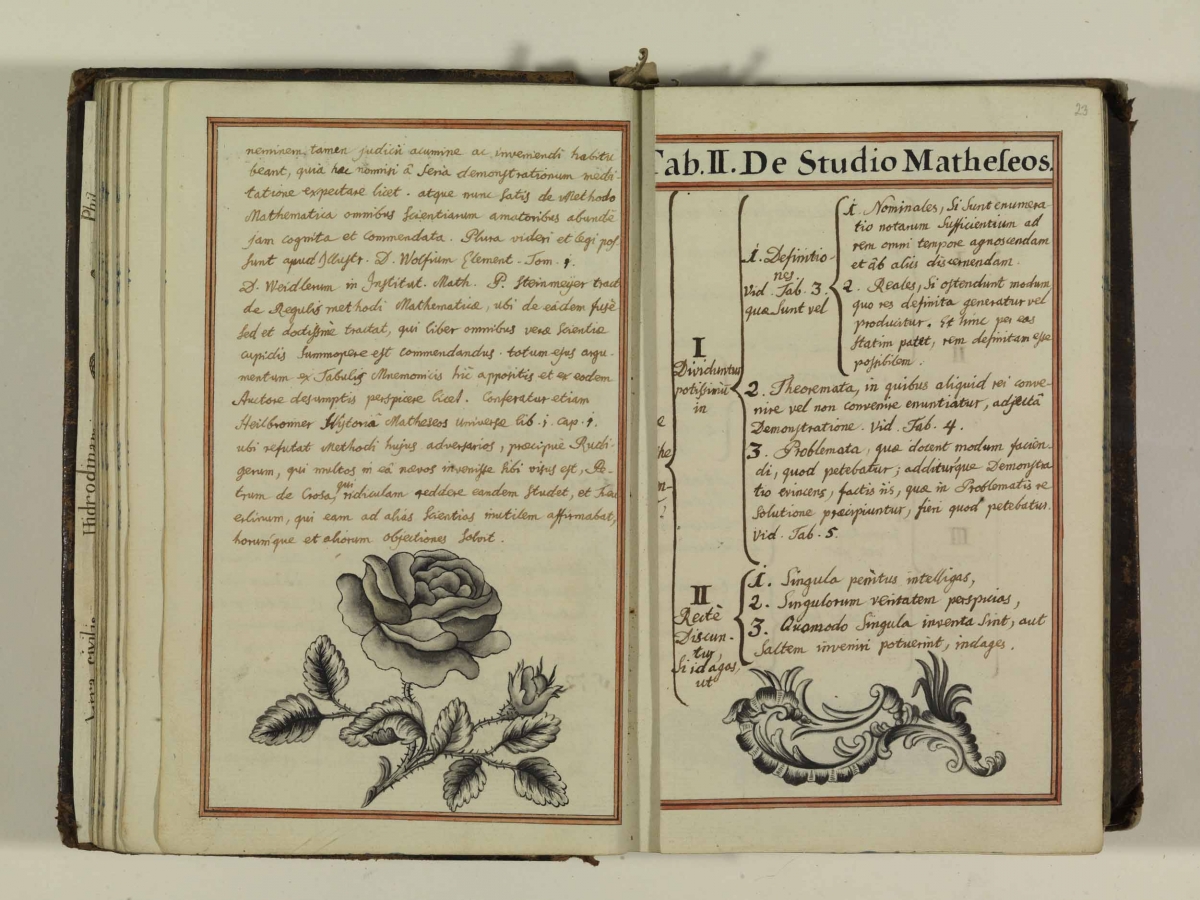 neminem tamen judicii acumine ac inveniendi habitu
beant, quia hac nonnisi â seria demonstrationum medi-
tatione expectare licet. atque nunc satis de Methodo
Mathematica omnibus scientiarum amatoribus abundè
jam cognita et commendata. Plura videri et legi pos
sunt apud Illustr. D. Wolfium Element. Tom. 1.
D. Weidlerum in Institut. Math. P. Steinmeyer tract
de Regulis methodi Mathematicæ, ubi de eadem fusè
sed et doctissime tractat, qui liber omnibus veræ scientiæ
cupidis summopere est commendandus. totum ejus argu-
mentum ex Tabulis Mnemonicis hîc appositis et ex eodem
Autore desumptis perspicere licet. Conferatur etiam
Heilbronner Historiâ Matheseos universæ lib. 1. cap. 1.
ubi refutat Methodi hujus adversarios, præcipuè Rudi-
gerum, qui multos in eâ nævos invenisse sibi visus est, Pe-
trum de Crosa, qui ridiculam reddere eandem studet, et
eam ad alias scientias inutilem affirmabat,
horumque et aliorum objectiones solvit.
Phil
Hidrodinami
civilis
23
Tab. II. De Studio Matheseos.
I
Dividuntur
potissimū
in
1. Definitio-
nes
Vid. Tab. 3.
quæ sunt vel
1. Nominales, si sunt enumera-
tio notarum sufficientium ad
rem omni tempore agnoscendam
et âb aliis discernendam.
2. Reales, si ostendunt modum
quo res definita generatur vel
producitur. Et hinc per eas
statim patet, rem definitam esse
possibilem.
2. Theoremata, in quibus aliquid rei conve-
nire vel non convenire enuntiatur, adjectâ
Demonstratione. Vid. Tab. 4.
3. Problemata, quæ docent modum facien-
di, quod petebatur; additurque Demonstra
tio evincens, factis iis, quæ in Problematis re
solutione præcipiuntur, fieri quod petebatur.
Vid. Tab. 5.
II
Rectè
Discun-
tur,
si id agas,
ut
1. Singula penitus intelligas,
2. Singulorum veritatem perspicias,
3. Quomodo singula inventa sint, aut
saltem inveniri potuerint, indages.